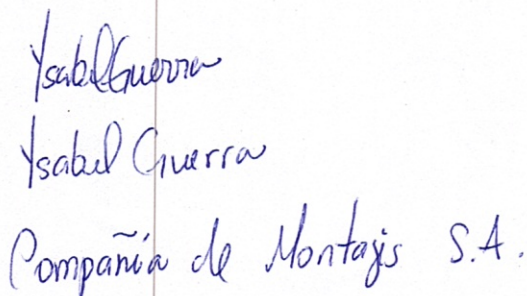 Ysabel Guerra
Ysabel Guerra
Compañia de Montajes S.A.